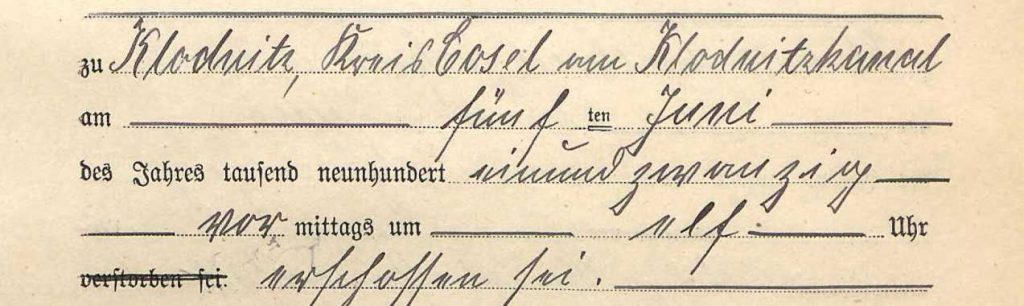 zu Klodnitz, Kreis Cosel am Klodnitzkanal
am fünf ten Juni
des Jahres tausend neunhundert einundzwanzig
vor mittags um elf Uhr
verstorben sei. erschossen sei.